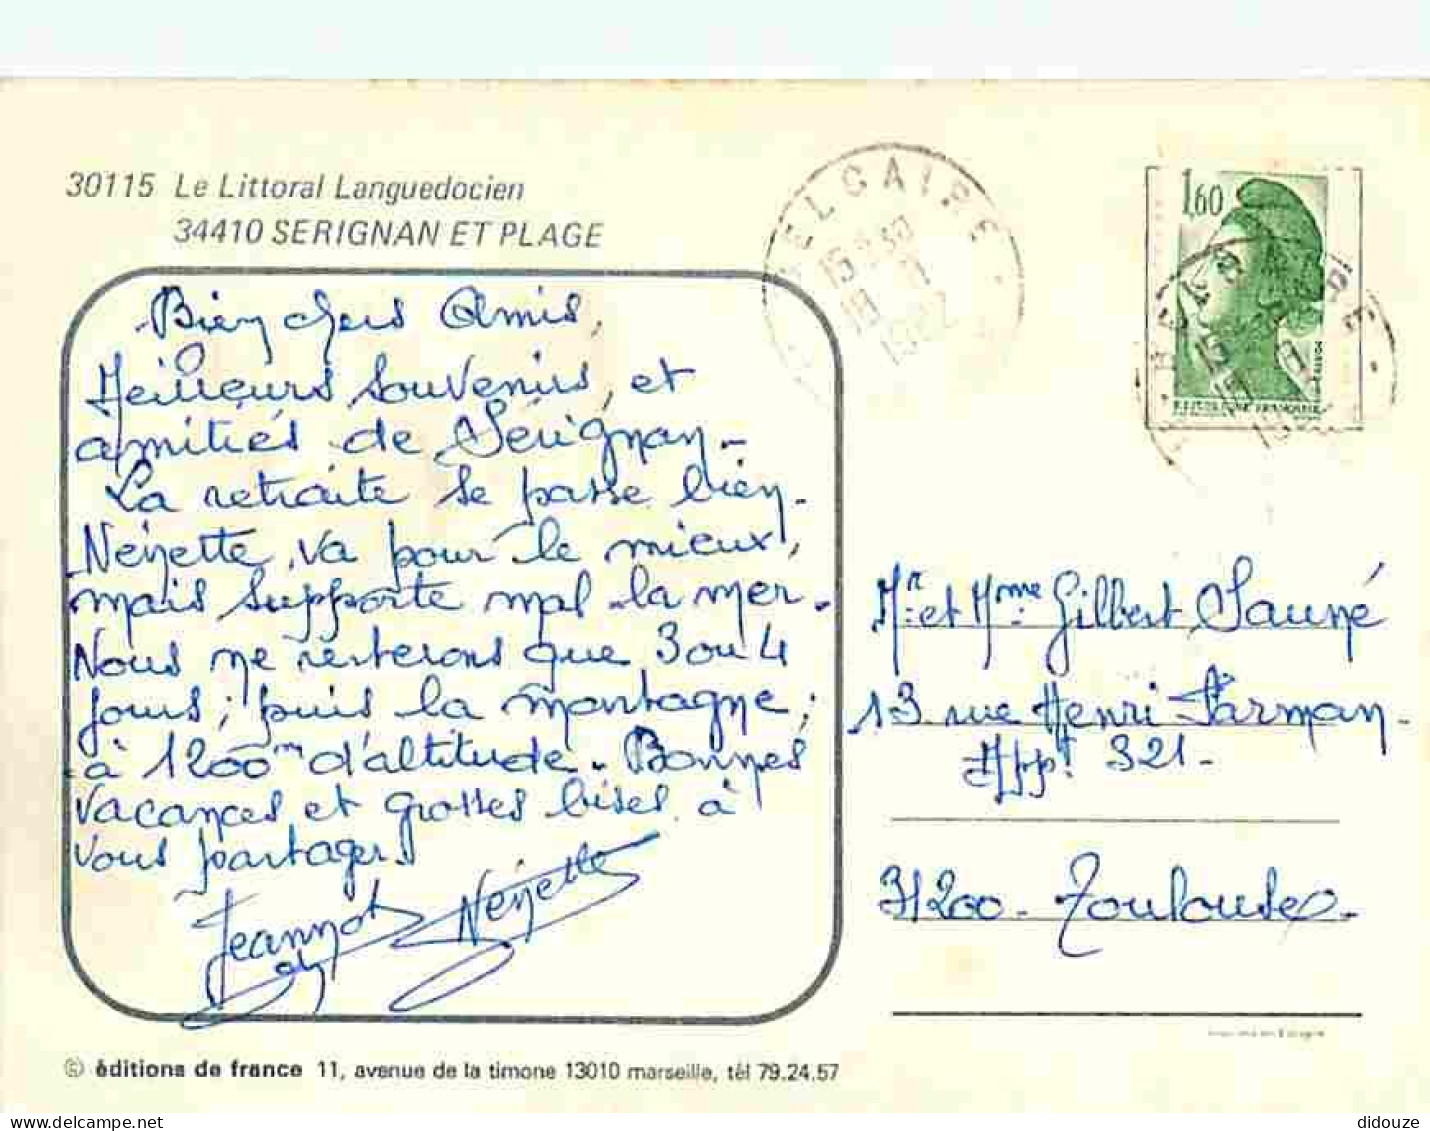 30115 Le Littoral Languedocien
34410 SERIGNAN ET PLAGE
Bien chers Amis,
Meilleurs souvenirs, et
amitiés de Sérignan -
La retraite se passe bien -
Nénette, va pour le mieux,
mais supporte mal la mer -
Nous ne resterons que 3 ou 4
jours ; puis la montagne,
à 1200m d'altitude - Bonnes
vacances et grosses bises à
vous partager.
Jeannot Nénette
ELCAIRE
1,60
REPUBLIQUE FRANÇAISE
Mr et Mme Gilbert Sauné
13 rue Henri Farman -
Appt 321 -
31200 - Toulouse -
© éditions de france 11, avenue de la timone 13010 marseille, tél 79.24.57
didouze